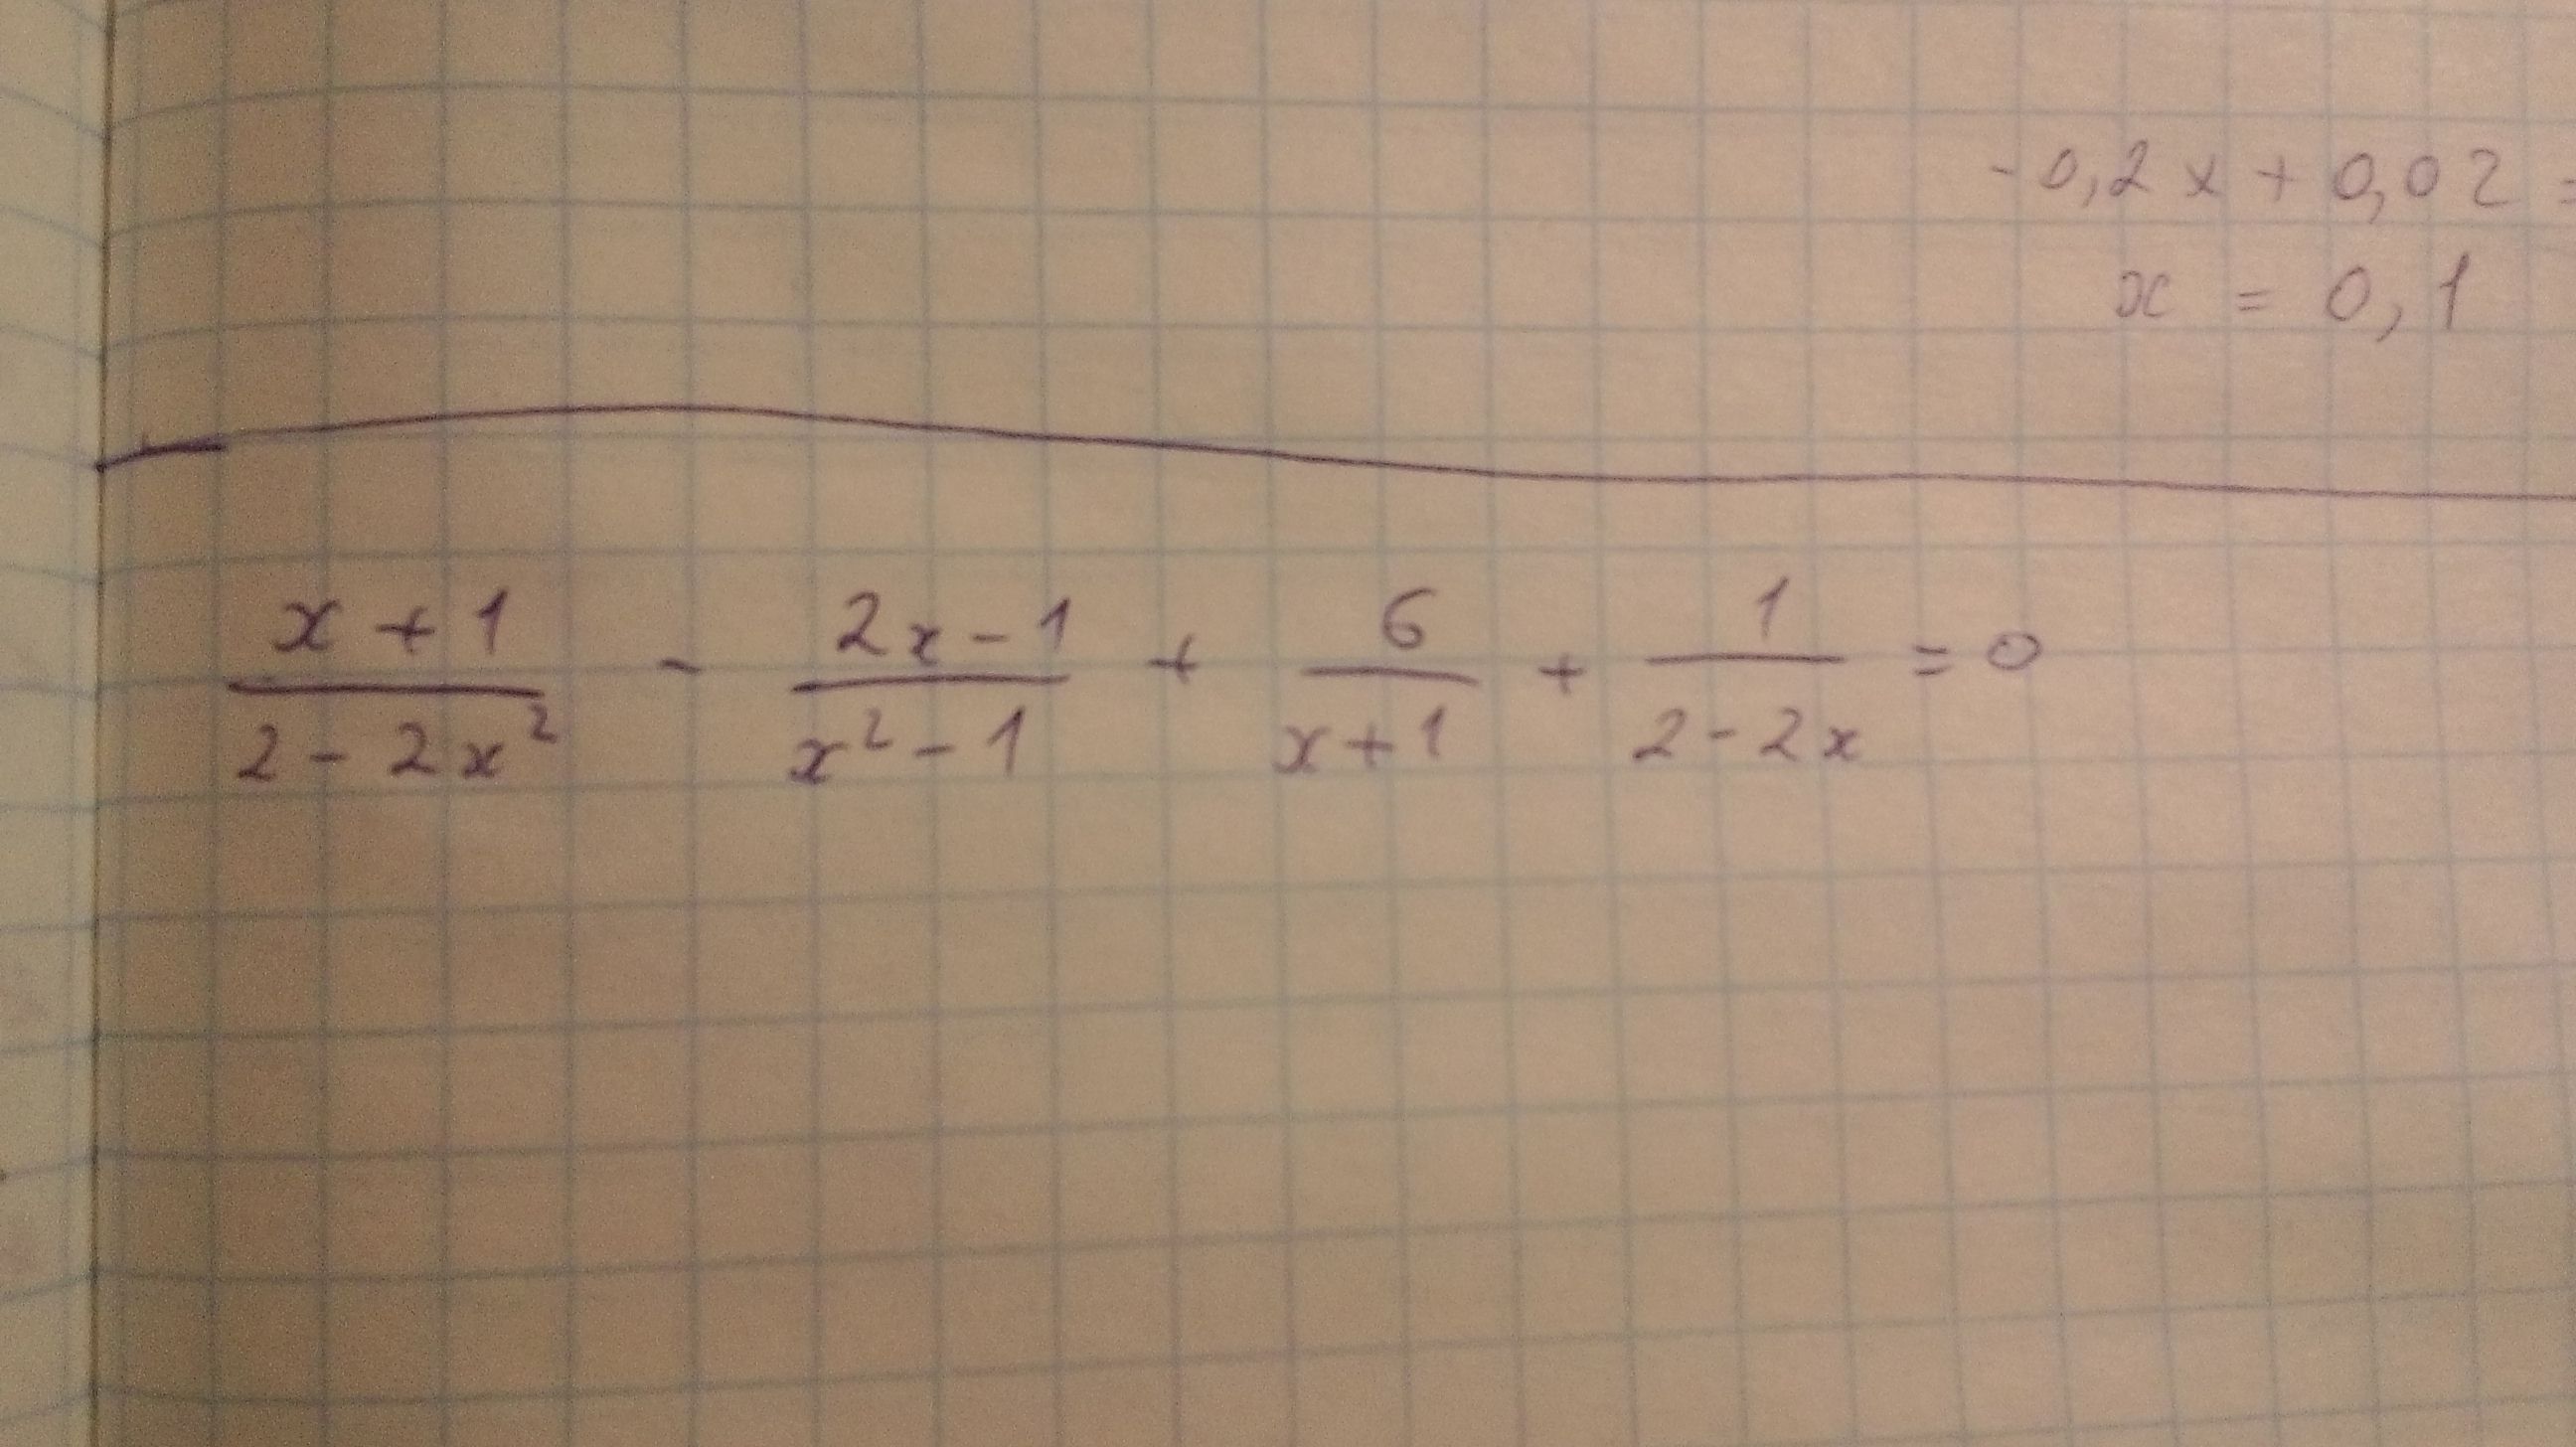 -0,2x + 0,02 =
x = 0,1
(x + 1)/(2 - 2x²) - (2x - 1)/(x² - 1) + 6/(x + 1) + 1/(2 - 2x) = 0